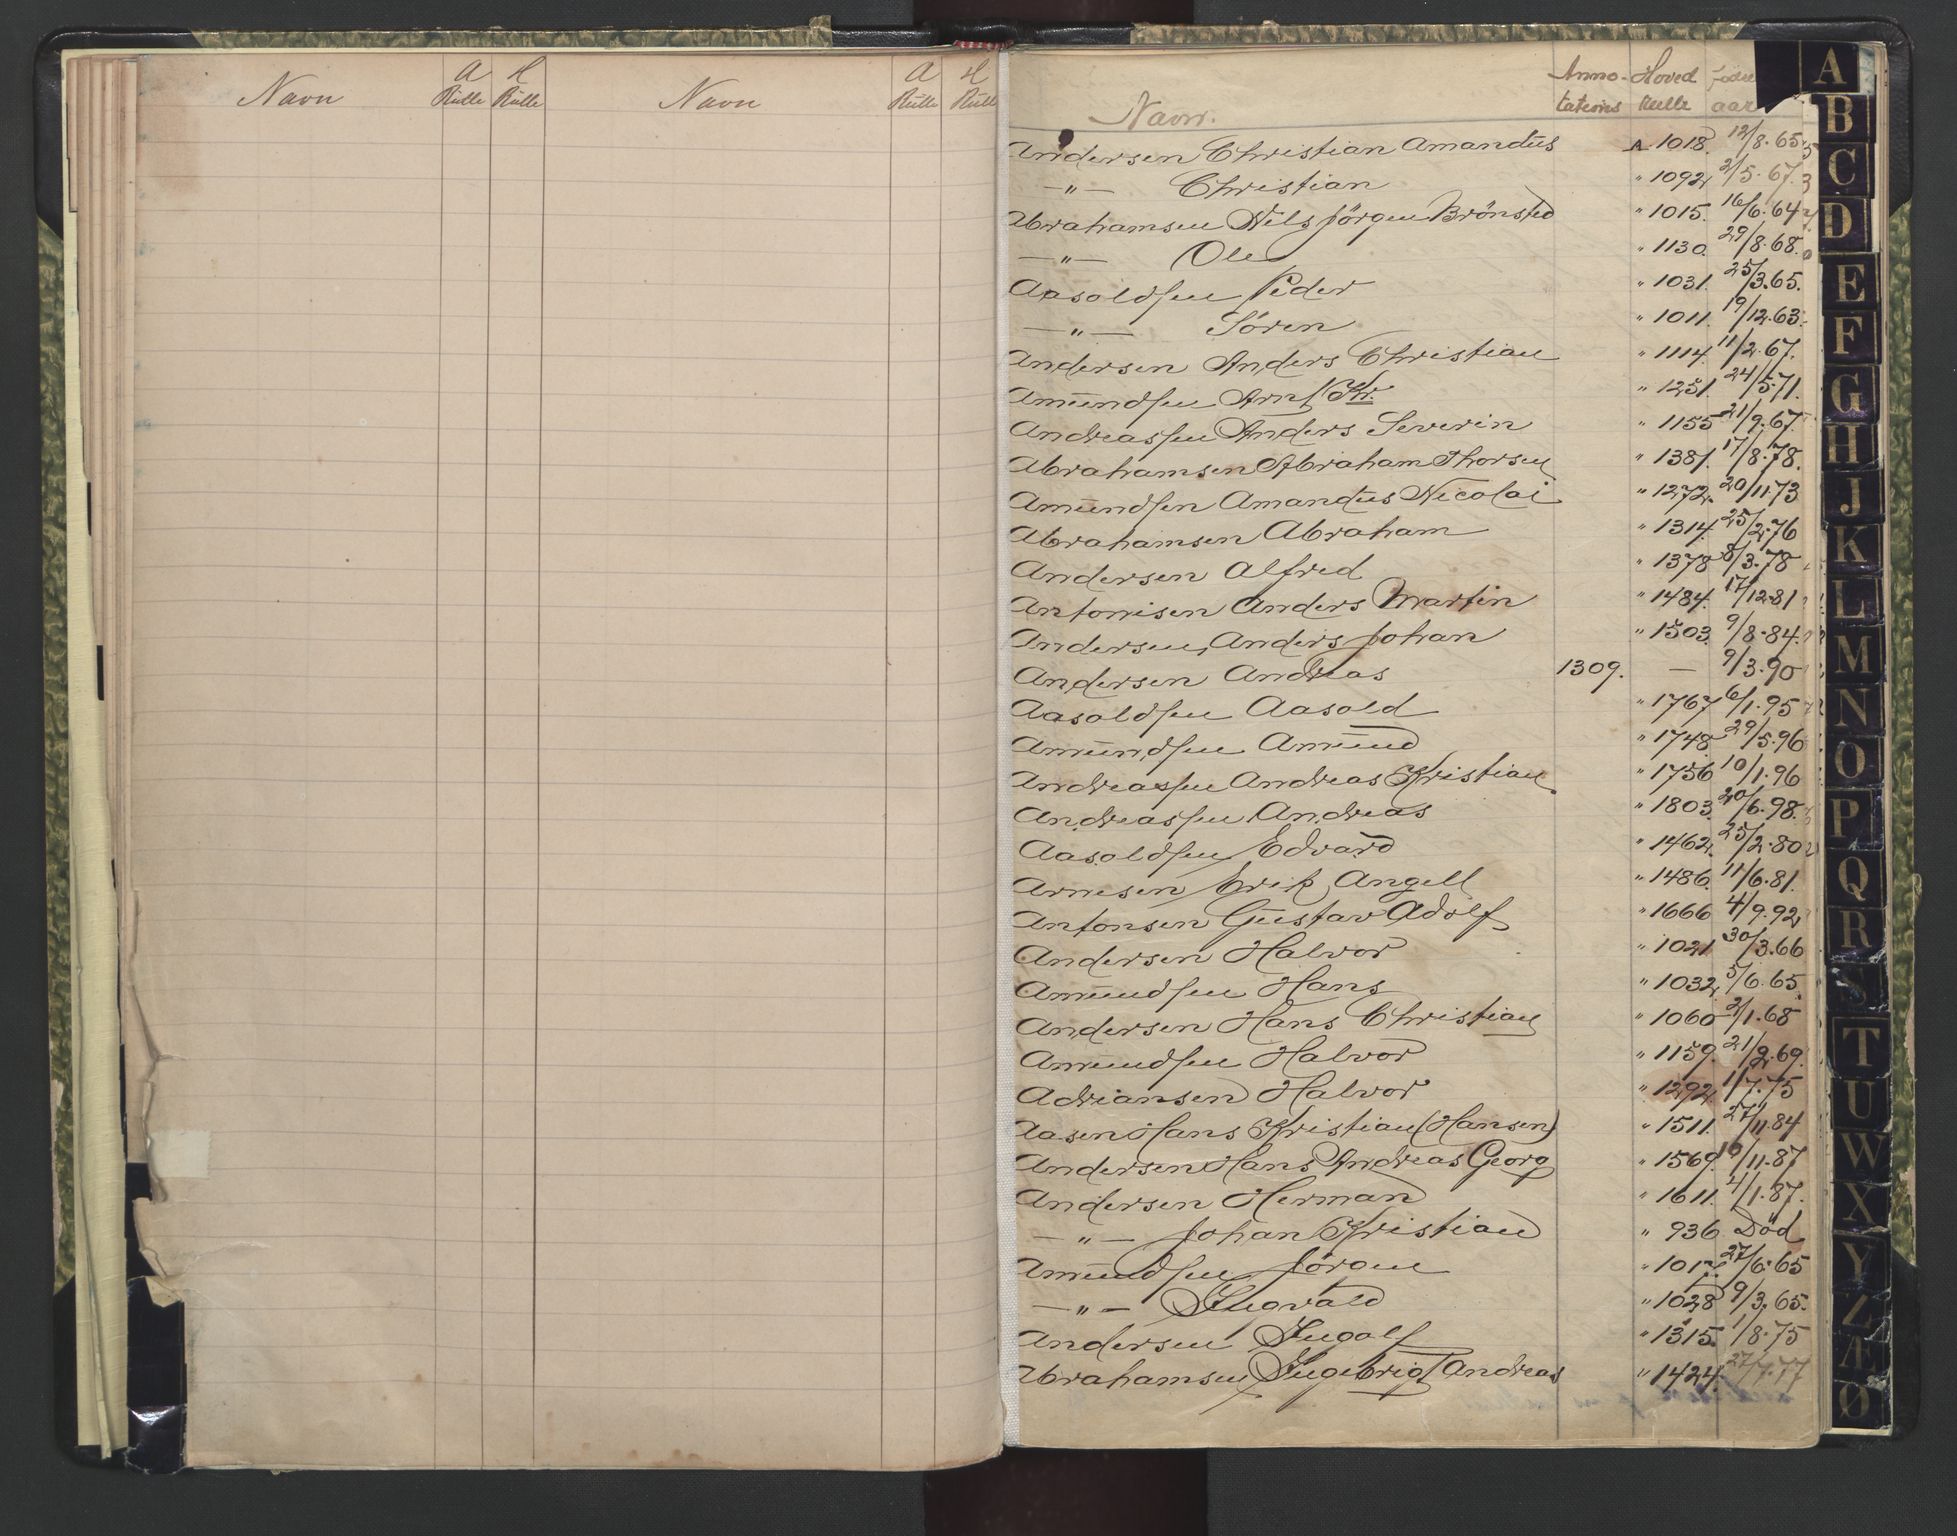 Navn A Rulle H Rulle Navn A Rulle H Rulle
Navn. Anno- Hoved
tations Rulle aar
Andersen Christian Amandus A 1018. 12/8.65
—"— Christian " 1092 2/5.67.
Abrahamsen Nils Jörgen Brönsted " 1015. 16/6.64
—"— Ole " 1130. 29/8.68.
Aasoldsen Peder " 1031. 25/3.65.
—"— Sören " 1011. 19/12.63.
Andersen Anders Christian " 1114. 11/2.67.
Amundsen Arnt Chr. " 1251. 24/5.71.
Andreassen Anders Severin " 1155 21/9.67.
Abrahamsen Abraham Thorsen " 1381. 17/8.78.
Amundsen Amandus Nicolai " 1272. 20/11.73
Abrahamsen Abraham " 1314. 25/2.76
Andersen Alfred " 1378 8/3.78
Antonisen Anders Martin " 1484. 17/12.81
Andersen, Anders Johan " 1503. 9/8.84.
Andersen Andreas 1309. — 9/3.90
Aasoldsen Aasold " 1767 6/1.95
Amundsen Amund " 1748 29/5.96
Andreassen Andreas Kristian. " 1756 10/1.96
Andreassen Andreas " 1803. 20/6.98.
Aasoldsen Edvard " 1462. 25/2.80
Arnesen Erik Angell " 1486. 11/6.81.
Antonsen Gustav Adolf " 1666 4/9.92
Andersen Halvor " 1021. 30/3.66
Amundsen Hans " 1032. 5/6.65.
Andersen Hans Christian " 1060 2/1.68
Amundsen Halvor " 1159. 21/2.69.
Adriansen Halvor " 1292. 1/7.75
Aasen Hans Kristian (Hansen) " 1511. 27/11.84
Andersen Hans Andreas Georg " 1569. 10/11.87
Andersen Herman " 1611. 4/1.87.
—"— Johan Kristian " 936. Död
Amundsen Jörgen " 27/6.65
—"— Ingvald " 1028 9/3.65.
Andersen Ingolf " 1315. 1/8.75
Abrahamsen Ingebrigt Andreas " 1424. 27/7.77
A
B
C
D
E
F
G
H
J
K
L
M
N
O
P
Q
R
S
T
U
W
X
Y
Z
Æ
Ø